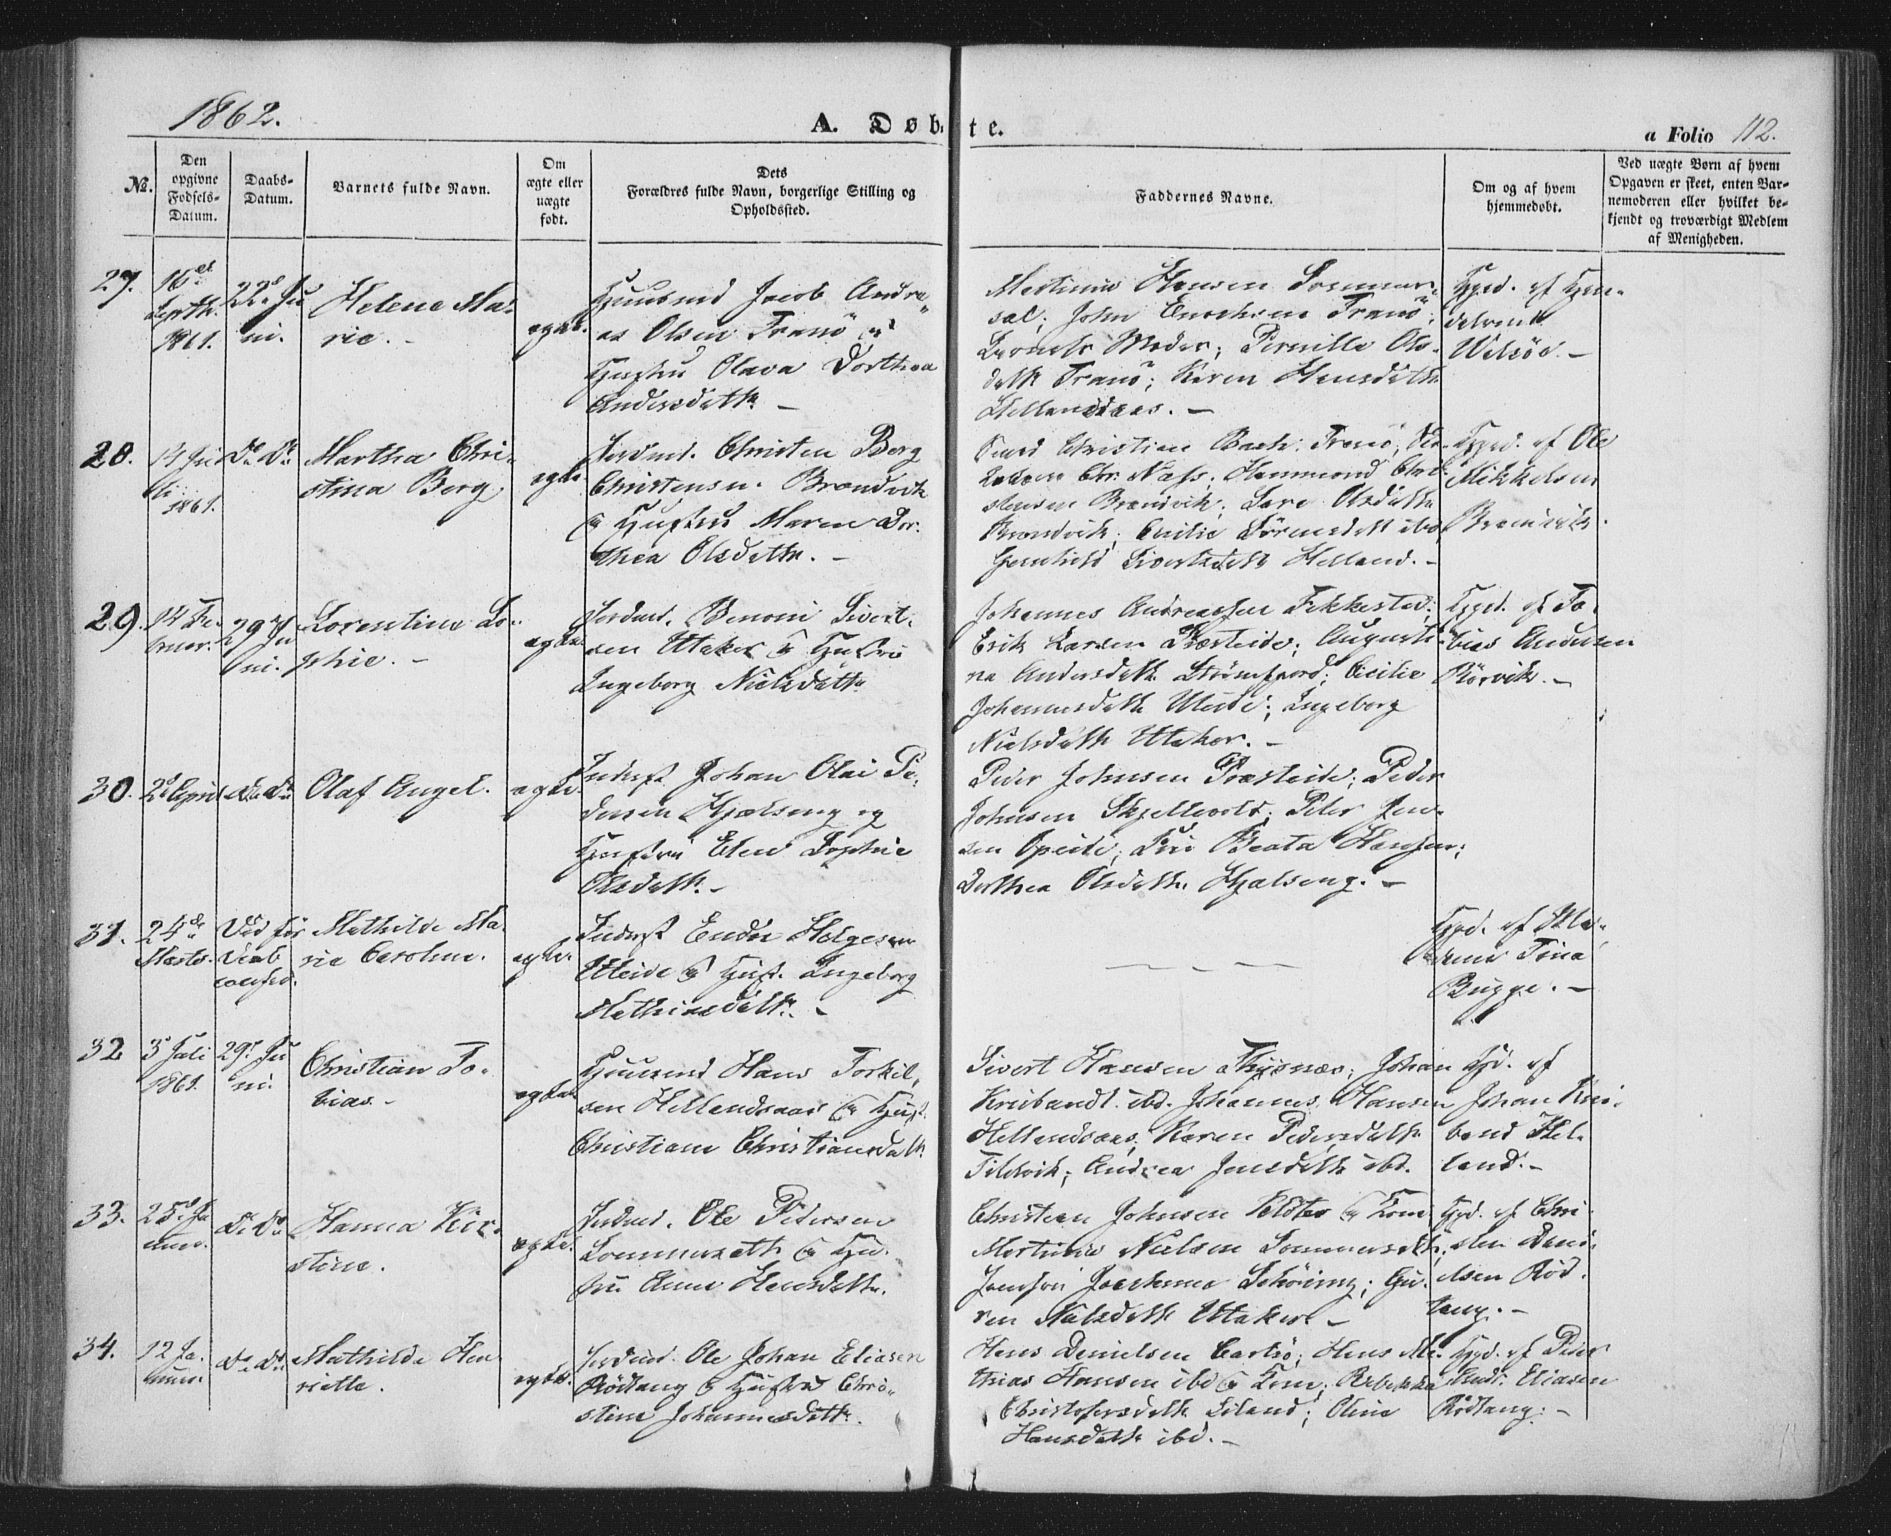 1862.
A. Døbte.
a Folio 112.
No.
Den
opgivne
Fødsels-
Datum.
Daabs-
Datum.
Barnets fulde Navn.
Om
ægte eller
uægte
født.
Dets
Forældres fulde Navn, borgerlige Stilling og
Opholdssted.
Faddernes Navne.
Om og af hvem
hjemmedøbt.
Ved uægte Børn af hvem
Opgaven er skeet, enten Bar-
nemoderen eller hvilket be-
kjendt og troværdigt Medlem
af Menigheden.
27.
16de
Septb.
1861.
22de Ju
ni.
Helena Ma-
rie. -
ægte.
Huusmd Jacob Andre-
as Olsen Tranö &
Hustru Olava Dorthea
Andersdatter. -
Martinus Hansen Sommer-
sal; John Enochsen Tranö;
Barnets Moder; Pernille Ols-
datt Tranö; Karen Hansdatter
Hellandsaas. -
28.
14 Ju
li
1861.
Do Do
Martha Chri-
stina Berg.
ægte.
Jordmd. Christen Berg
Christensen Brændvik
& Hustru Maren Dor-
thea Olsdatter. -
Christian Bach Tranö;
Chr. Næss; Hammond Chri-
stensen Brændvik; Sara Olsdatter
Brændvik; Cecilie Sörensdatt ibd
Gunhild Sivertsdatt Helland. -
Hjd. af Ole
Mikkelsen
Brændvik.
29.
14 Fe-
bruar.
29de Ju
ni.
Lorentine So-
phie. -
ægte.
Jordmd. Benoni Sivert-
sen Utaker & Hustru
Ingeborg Nielsdatter
Johannes Andreassen Fikkestad;
Erik Larsen Præsteide; Augusti-
na Andersdatt Strömfjord; Cicilie
Johannesdatt Uteide; Ingeborg
Nielsdatt Utaker. -
Hjd. af To-
bias Andersen
Rörvik. -
30.
2de April
Do Do
Olaf Angel.
ægte.
Inderst Johan Olai Pe-
dersen Hjælseng og
Hustru Elen Sophie
Olsdatt. -
Peder Johnsen Præsteide; Peder
Johnsen Skjellevold; Peter Jen-
sen Opeide; Beata Hansen;
Dorthea Olsdatt. Hjalseng. -
31.
24de
Marts.
Död för
Daab
Mathilde Ma-
rie Caroline.
ægte.
Inderst Endre Helgesen
Uteide & Hust. Ingeborg
Mathiasdatt. -
Hjd. af Ma-
Tina
Bugge. -
32
3de Juli
1861.
29de Ju
ni.
Christian To-
bias. -
ægte
Huusmd Hans Torkil-
sen Hellandsaas & Hust.
Christiane Christiansdatt.
Sivert Hansen Thysnæs; Johan
Kribandt ibd. Johannes Hansen
Hellandsaas; Karen Pedersdatt
Tilkvik; Andrea Jensdatt ibd.
Hjd. af
Johan Kri-
band Hel-
land. -
33.
25de Ja
nuar.
Do Do
Hanna Kir-
stine.
ægte.
Jordmd. Ole Pedersen
Sommersæth & Hu-
stru Anne Hansdatter.
Christian Johnsen & Kone
Martinus Nielsen Sommersæth;
Jomfru Schöning; Gu-
ren Nielsdatt Uttaker. -
Hjd. af Chri-
sten Dani-
elsen Röd-
tang. -
34.
12 Ja-
nuar.
Do Do
Mathilda Hen-
riette.
ægte.
Jordmd. Ole Johan Eliasen
Rödtang & Hustru Chri-
stine Johannesdatt.
Hans Danielsen Carlsö; Hans Ma-
thias Hansen ibd & Kone; Rebekka
Christofersdatt Leland; Oline
Hansdatt ibd. -
Hjd. af Peder
Eliasen
Rödtang. -